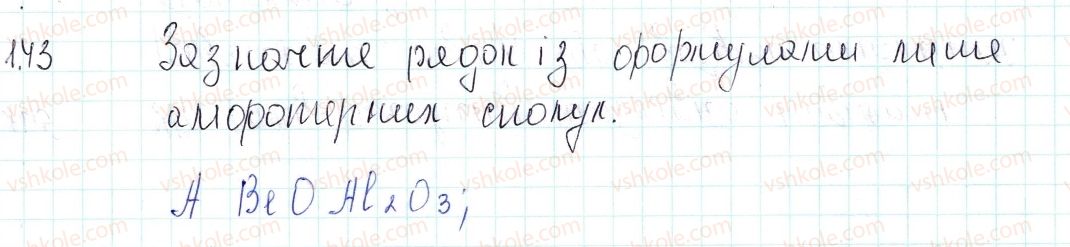 1.43 Зазначте рядок із формулами лише
амфотерних сполук.
А BeO Al₂O₃;